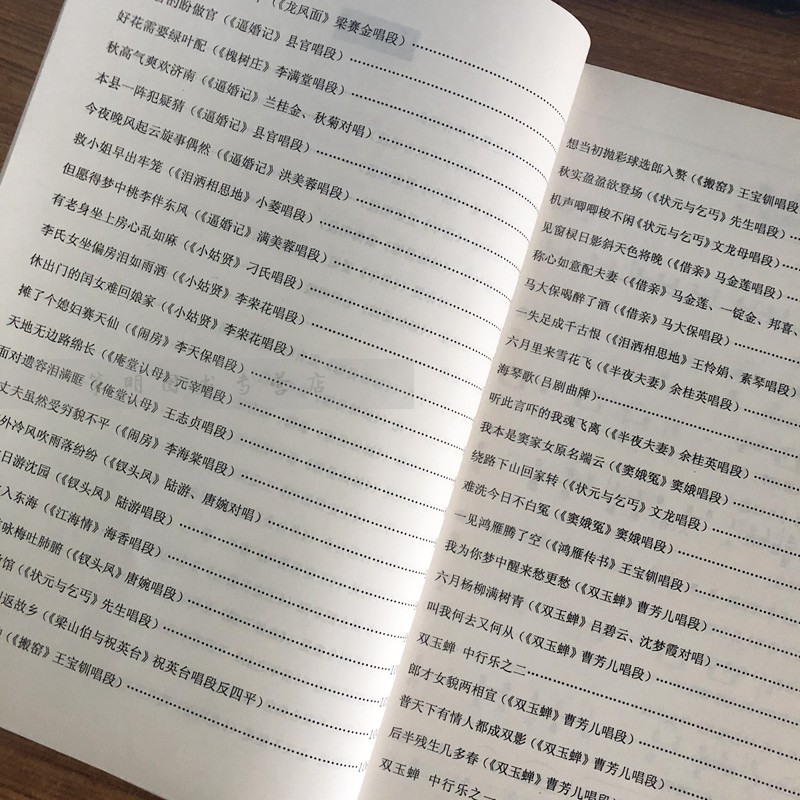 《龙凤面》梁赛金唱段）
的盼做官（《逼婚记》县官唱段）
好花需要绿叶配（《槐树庄》李满堂唱段）
秋高气爽欢济南（《逼婚记》兰桂金、秋菊对唱）
本县一阵犯疑猜（《逼婚记》县官唱段）
今夜晚风起云旋事偶然（《逼婚记》洪美蓉唱段）
救小姐早出牢笼（《泪洒相思地》小菱唱段）
但愿得梦中桃李伴东风（《逼婚记》满美蓉唱段）
有老身坐上房心乱如麻（《小姑贤》刁氏唱段）
李氏女坐偏房泪如雨洒（《小姑贤》李荣花唱段）
休出门的闺女难回娘家（《小姑贤》李荣花唱段）
摊了个媳妇赛天仙（《闹房》李天保唱段）
天地无边路绵长（《庵堂认母》元宰唱段）
面对遗容泪满眶（《俺堂认母》王志贞唱段）
丈夫虽然受穷貌不平（《闹房》李海棠唱段）
外冷风吹雨落纷纷（《钗头凤》陆游、唐婉对唱）
日游沈园（《钗头凤》陆游唱段）
入东海（《江海情》海香唱段）
咏梅吐肺腑（《钗头凤》唐婉唱段）
馆（《状元与乞丐》先生唱段）
返故乡（《梁山伯与祝英台》祝英台唱段反四平）
（《搬窑》王宝钏唱段）
想当初抛彩球选郎入赘（《搬窑》王宝钏唱段
秋实盈盈欲登场（《状元与乞丐》先生唱段）
机声唧唧梭不闲《状元与乞丐》文龙母唱段）
见窗棂日影斜天色将晚（《借亲》马金莲唱段）
称心如意配夫妻（《借亲》马金莲、一锭金、邦喜、
马大保喝醉了酒（《借亲》马大保唱段）
一失足成千古恨（《泪洒相思地》王怜娟、素琴唱段）
六月里来雪花飞（《半夜夫妻》余桂英唱段）
海琴歌（吕剧曲牌）
听此言吓的我魂飞离（《半夜夫妻》余桂英唱段）
我本是窦家女原名端云（《窦娥冤》窦娥唱段）
绕路下山回家转（《状元与乞丐》文龙唱段）
难洗今日不白冤（《窦娥冤》窦娥唱段）
一见鸿雁腾了空（《鸿雁传书》王宝钏唱段）
我为你梦中醒来愁更愁（《双玉蝉》曹芳儿唱段）
六月杨柳满树青（《双玉蝉》吕碧云、沈梦霞对唱）
叫我何去又何从（《双玉蝉》曹芳儿唱段）
双玉蝉 中行乐之二
郎才女貌两相宜（《双玉蝉》曹芳儿唱段）
普天下有情人都成双影（《双玉蝉》曹芳儿唱段）
后半残生几多春（《双玉蝉》曹芳儿唱段）
双玉蝉 中行乐之一